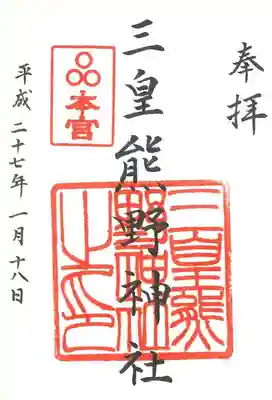 奉拝
三皇熊野神社
本宮
三皇熊
野神社
之印
平成二十七年一月十八日